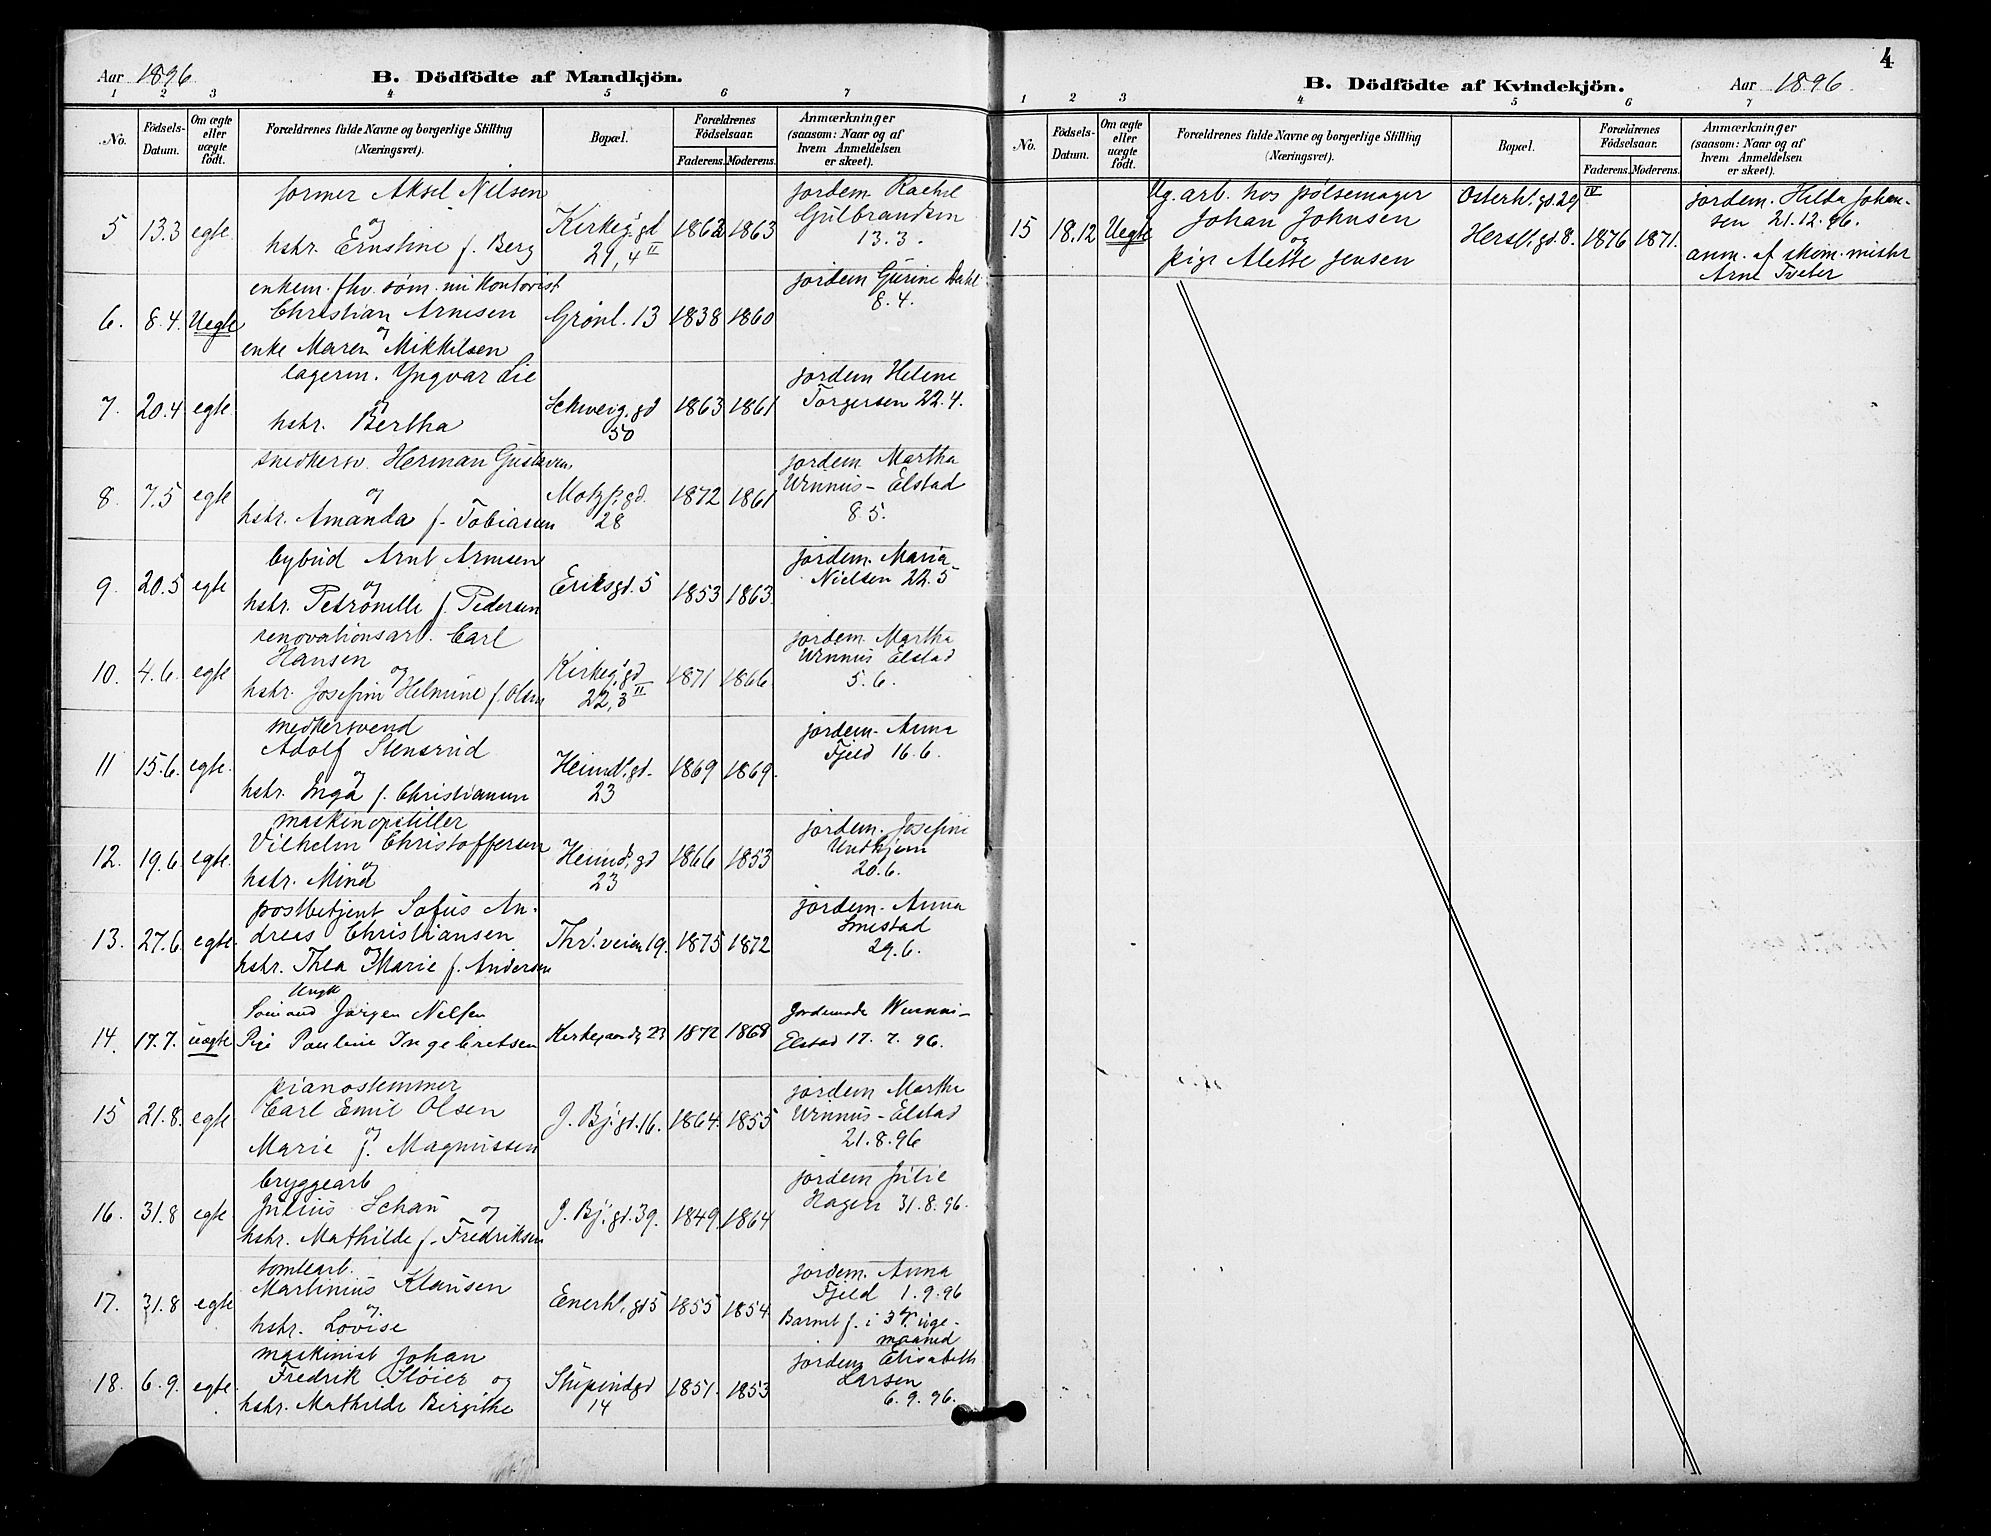 Aar 1896
B. Dödfödte af Mandkjön.
1 2 3 4 5 6 7
No. Födsels-Datum. Om ægte eller uægte födt. Forældrenes fulde Navne og borgerlige Stilling (Næringsvei). Bopæl. Forældrenes Födselsaar. Faderens. Moderens. Anmærkninger (saasom: Naar og af hvem Anmeldelsen er skeet).
former Aksel Nilsen jordem. Rachel
og Gulbrandsen
5 13.3 egte Kirkeg. gd 1862 1863 13.3.
hstr. Ernstine f. Berg 29, 4 II
enkem. fhv. søm. nu kontorist jordem Gurine Dahl
Christian Arnesen 8.4.
6. 8.4. Uegte og Grønl. 13 1838 1860
enke Maren Mikkelsen
lagerm. Yngvar Lie jordem Helene
7. 20.4 egte og Schweig. gd 1863 1861 Torgersen 22.4.
hstr. Bertha 50
snedkersv. Herman Gustavsen jordem. Martha
8. 7.5 egte og Motzf. gd. 1872 1861 Wnnus-Elstad
hstr. Amanda f. Tobiasen 28 8.5.
bybud Arnt Arnesen jordem. Maria
9. 20.5 egte og Eriksgd. 5 1853 1863. Nielsen 22.5
hstr. Petronelle f. Pedersen
renovationsarb. Carl jordem. Martha
Hansen Wnnus Elstad
10. 4.6. egte og Kirkeg. gd 1871 1866 5.6.
hstr. Josefine Helmine f. Olsen 22, 3 II
snedkersvend jordem. Anna
Adolf Stensrud Fjeld 16.6.
11 15.6. egte. og Heimd. gd. 1869 1869.
hstr. Inga f. Christiansen 23
maskinopstiller jordem. Josefine
Vilhelm Christoffersen
12. 19.6 egte. og Heimd. gd 1866 1853 20.6.
hstr. Mina 23
postbetjent Sofus An- jordem. Anna
dreas Christiansen Smestad
13. 27.6 egte. og Thr. veien 19. 1875 1872 29.6.
hstr. Thea Marie f. Andersen
Ungk
Sømand Jørgen Nilsen Jordemode Wunnus-
14. 17.7. uægte Pige Pauline Ingebretsen Kirkegaardg 23 1872 1868 Elstad 17. 7. 96.
pianostemmer jordem Martha
Carl Emil Olsen Wnnus-Elstad
15 21.8. egte og J. Bj. gd. 16. 1864. 1855 21.8.96
Marie f. Magnussen
bryggearb jordem Julie
16. 31.8 egte Julius Schau og J. Bj. gd. 39. 1849. 1864 Hagen 31.8.96.
hstr. Mathilde f. Fredriksen
tomtearb. jordem. Anna
Martinius Klausen Fjeld 1.9.96
17. 31.8 egte og Enerh. gd 5 1855 1854. Barnet f. i
hstr. Lovise maaned
maskinist Johan jordem Elisabeth
18. 6.9. egte. Fredrik Støier og Stupindgd 1851. 1853 Larsen
hstr. Mathilde Birgithe 14 6.9.96.
4
B. Dödfödte af Kvindekjön.
Aar 1896.
1 2 3 4 5 6 7
No. Födsels-Datum. Om ægte eller uægte födt. Forældrenes fulde Navne og borgerlige Stilling (Næringsvei). Bopæl. Forældrenes Födselsaar. Faderens. Moderens. Anmærkninger (saasom: Naar og af hvem Anmeldelsen er skeet).
Ug. arb. hos pølsemager Osterh. gd. 29 IV jordem. Hilda Johan-
15 18.12 Uegte Johan Johnsen sen 21.12.96.
og Hersl. gd. 8. 1876 1871. anm. af skom. mister
pige Alette Jensen Arne Tveter